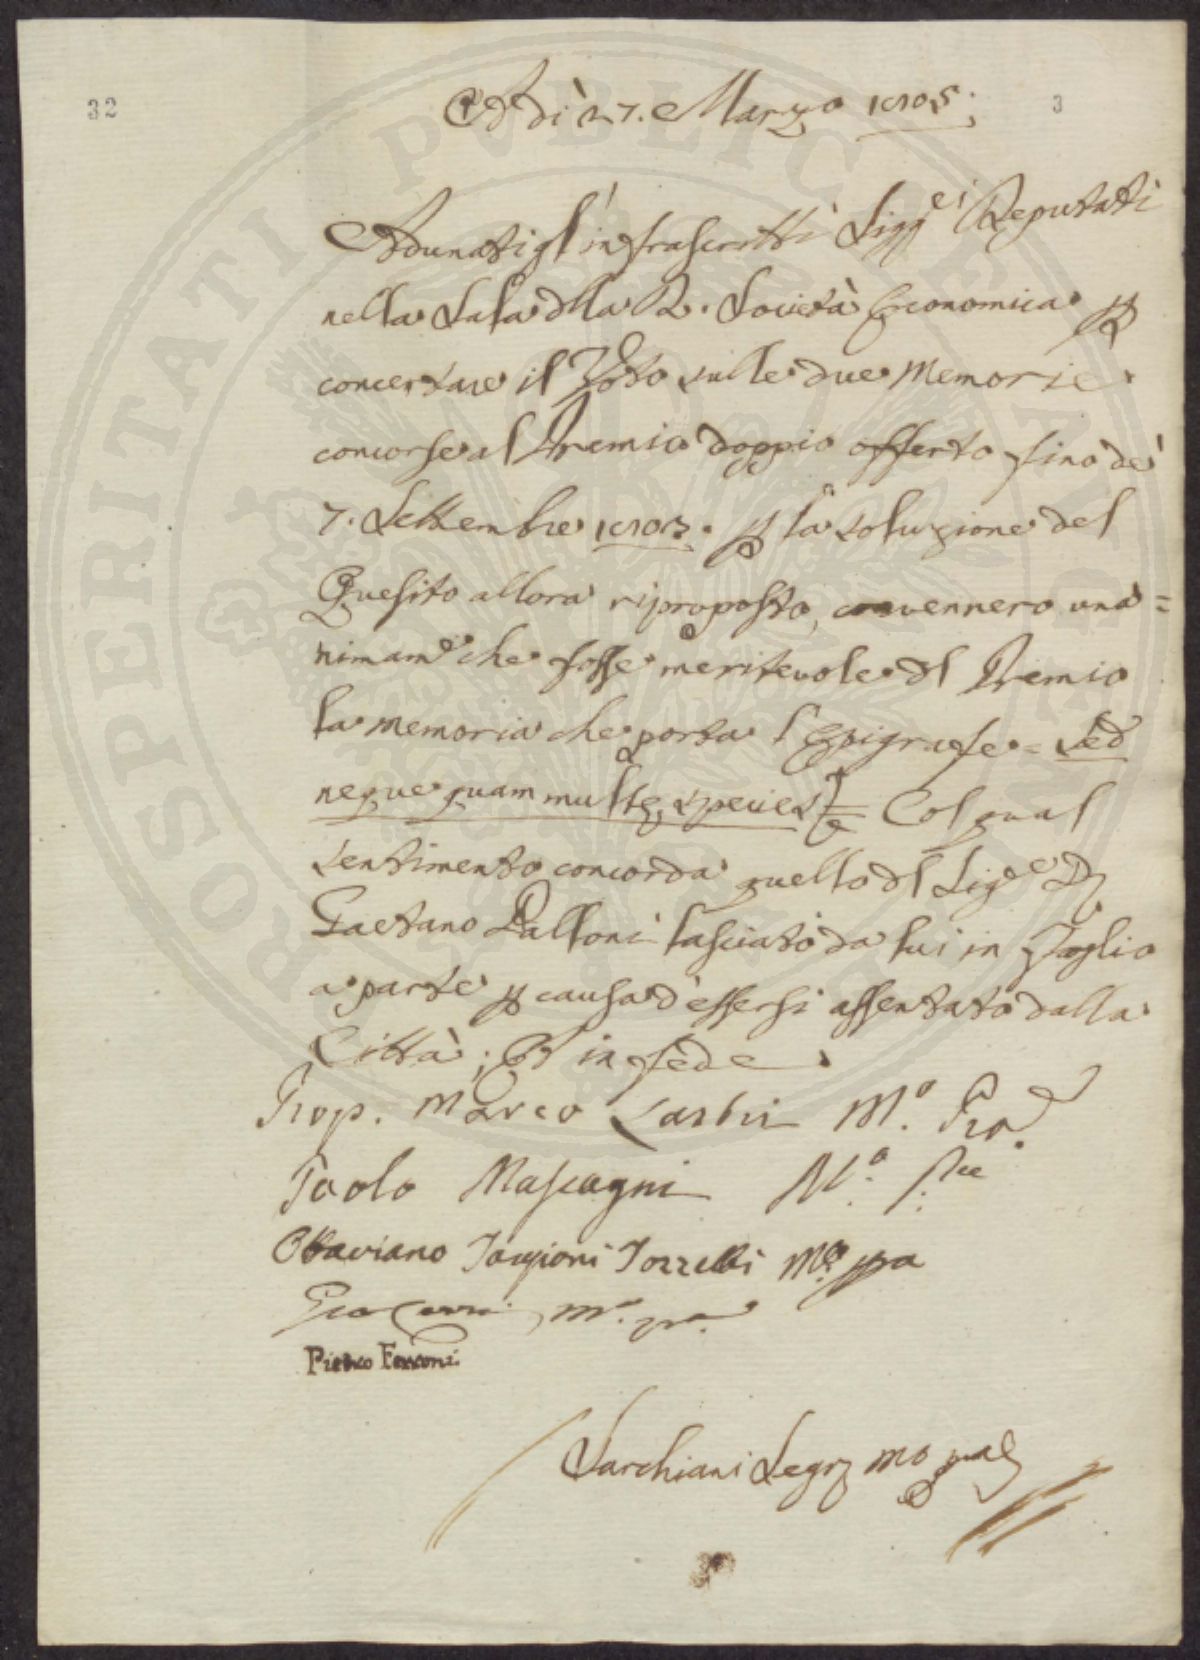 32
3
Adì 27. Marzo 1805.
Adunati gl'infrascritti Sigg.ei Deputati
nella Sala dlla R. Società Economica p
concertare il Voto sulle due Memorie
concorse al Premio doppio offerto fino de'
7. Settembre 1803. p la soluzione del
Quesito allora riproposto, convennero una=
nimam.e che fosse meritevole dl Premio
la Memoria che porta l'Epigrafe = Sed
neque quam multę species =  Col qual
sentimento concorda quello dl Sig.e D.
Gaetano Palloni lasciato da lui in Foglio
a parte p causa d'essersi assentato dalla
Città; E in fede
Prop. Marco Lastri M.o
Paolo Mascagni M.o
Ottaviano Targioni Tozzetti M.o ppa
m.o pa
Pietro Ferroni.
Sarchiani Segr. mo
PROSPERITATI PUBLICAE AUGENDAE